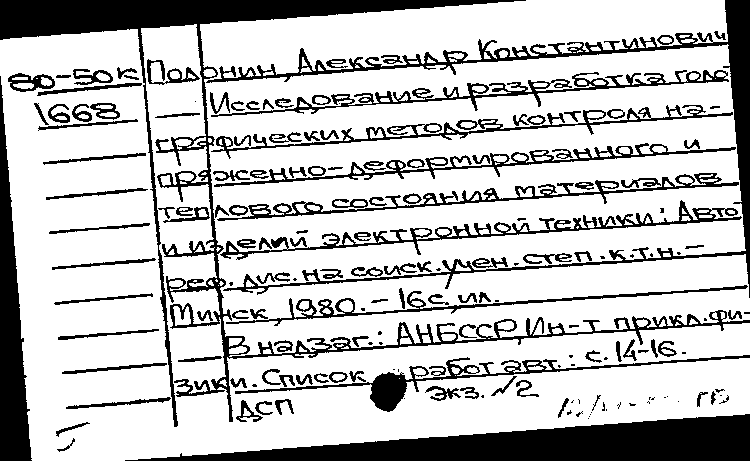 80-50к Полонин, Александр Константинович
1668 — Исследование и разработка голо
графических методов контроля на-
пряженно-деформированного и
теплового состояния материалов
и изделий электронной техники: Авто
реф. дис. на соиск. учен. степ. к.т.н. –
Минск, 1980. – 16с., ил.
— В надзаг.: АНБССР, Ин-т прикл. фи-
зики. Список работ авт.: с. 14-16.
ДСП экз. №2
ГБ